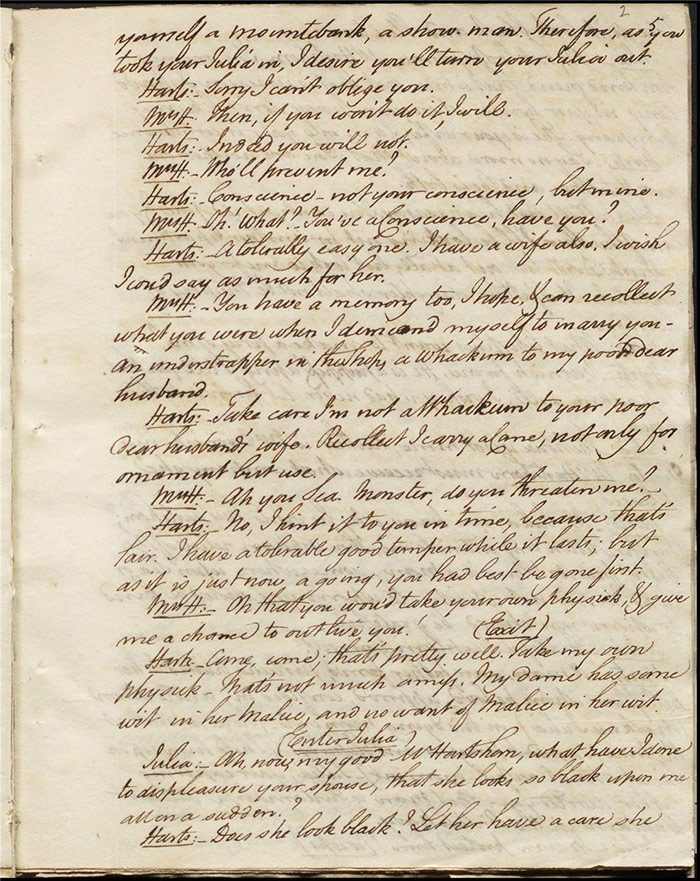 2
yourself a mountebank, a show-man. Therefore, as you
took your Julia in, I desire you'll turn your Julia out.
Harts:- Sorry I can't oblige you.
Mrs H.- Then, if you won't do it, I will.
Harts:- Indeed you will not.
Mrs H.- Who'll prevent me?
Harts:- Conscience - not your conscience, but mine.
Mrs H.- Oh! what? - You've a Conscience, have you?
Harts:- A tolerally easy one. I have a wife also. I wish
I coud say as much for her.
Mrs H.- You have a memory too, I hope, & can recollect
what you were when I demeand myself to marry you -
an understrapper in the shop, a Whackum to my poor dear
husband.
Harts:- Take care I'm not a Whackum to your poor
dear husband's wife. Recollect I carry a Cane, not only for
ornament but use.
Mrs H:- Ah you Sea-Monster, do you threaten me?
Harts:- No, I hint it to you in time, because that's
fair. I have a tolerable good temper while it lasts; but
as it is just now a going, you had best be gone first.
Mrs H:- Oh that you woud take your own physick, & give
me a chance to outlive you! (Exit)
Harts- Come, come, that's pretty well. Take my own
physick - that's not much amiss. My dame has some
wit in her Malice, and no want of Malice in her wit.
(Enter Julia)
Julia:- Ah now, my good Mr Hartshorn, what have I done
to displeasure your spouse, that she looks so black upon me
all on a sudden?
Harts:- Does she look black? Let her have a care she